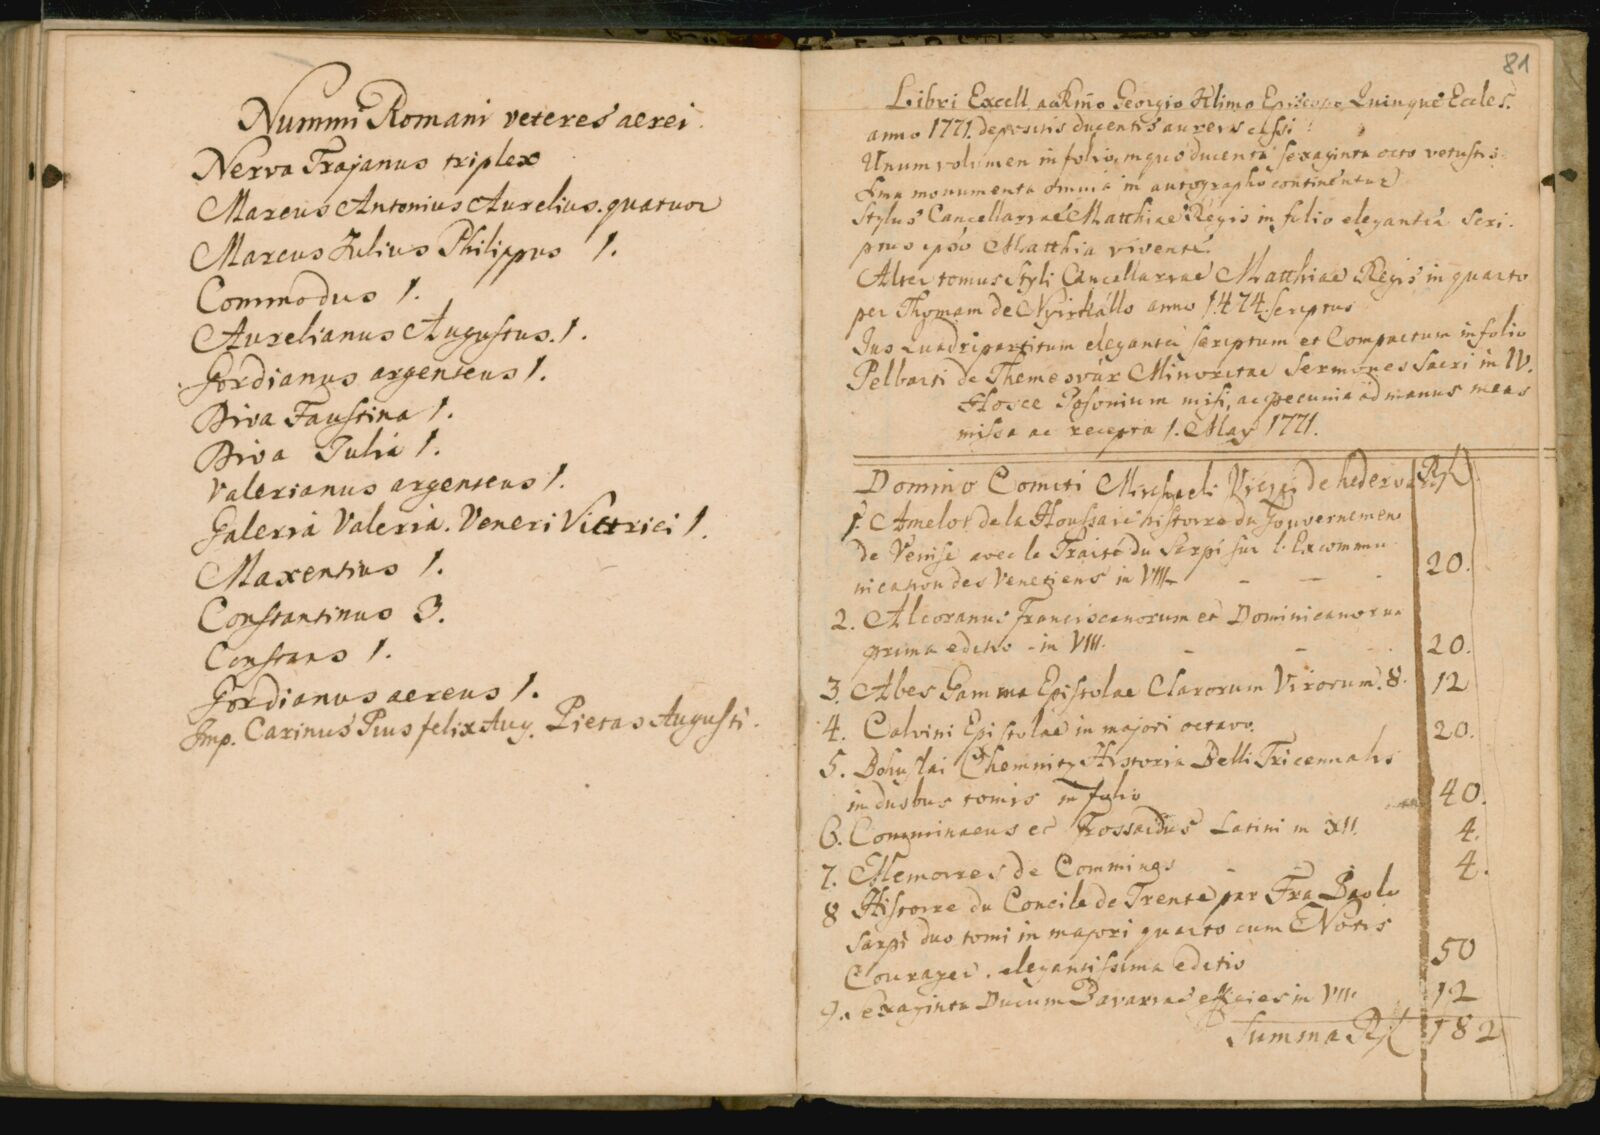 Nummi Romani veteres aerei.
Nerva Trajanus triplex
Marcus Antonius Aurelius. quatuor
Marcus Julius Philippus 1.
Commodus 1.
Aurelianus Augustus. 1.
Gordianus argenteus 1.
Diva Faustina 1.
Diva Julia 1.
Valerianus argenteus 1.
Galeria Valeria. Veneri Victrici 1.
Maxentius 1.
Constantinus 3.
Constans 1.
Gordianus aereus 1.
Imp. Carinus Pius felix Aug. Pietas Augusti.
81
Libri Excell. ac Rmo Georgio Klimo Episcopo Quinque Eccles.
anno 1771. deposuis ducentis aureis
Unum volumen in folio, in quo ducenta sexaginta octo vetustis-
sima monumenta omnia in autographo continentur
Stylus Cancellariae Matthiae Regis in folio eleganter scri-
ptus ipso Matthia vivente.
Alter tomus styli Cancellariae Matthiae Regis in quarto
per Thomam de Nyirkállo anno 1474. scriptus
Jus Quadripartitum eleganter scriptum et Compactum in folio
Pelbarti de Themesvár Minoritae Sermones Sacri in IV.
Hosce Posonium misi, ac pecunia ad manus meas
missa ac recepta 1. May 1771.
Domino Comiti Michaeli Viczei de hedervar Rf
1. Amelot de la Houssaie histoire du Gouvernemen
de Venise avec le Traité du Sarpi sur l'Excommu
nication des Venetiens in VIII - - - 20.
2. Alcoranus Franciscanorum et Dominicanorum
prima editio - in VIII. - - - 20.
3. Abes Gamma Epistolae Clarorum Virorum. 8. 12
4. Calvini Epistolae in majori octavo. 20.
5. Bohuslai Chemnitz Historia Belli Tricennalis
in duobus tomis in folio 40.
6. Comminaeus et Frossardus Latini in XII. 4.
7. Memoires de Commines - 4.
8 Histoire du Concile de Trente par Fra Paolo
Sarpi duo tomi in majori quarto cum Notis
Courayer. elegantissima editio 50
9. Sexaginta Ducum Bavariae effigies in VIII 12
Summa Rf 182